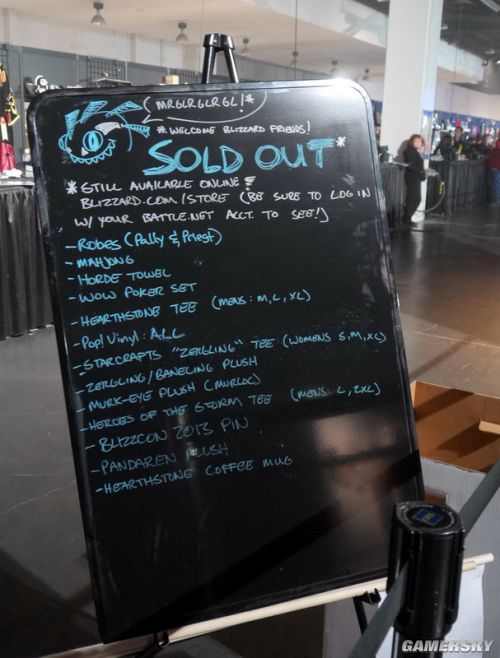 MRGLRGLRGL!*
* WELCOME BLIZZARD FRIENDS!
SOLD OUT*
* STILL AVAILABLE ONLINE!
BLIZZARD.COM/STORE (BE SURE TO LOG IN
W/ YOUR BATTLE.NET ACCT. TO SEE!)
- ROBES (Pally & Priest)
- MAHJONG
- HORDE TOWEL
- WOW POKER SET
- HEARTHSTONE TEE (MENS: M, L, XL)
- Pop! Vinyl: ALL
- STARCRAFTS "ZERGLING" TEE (WOMENS S, M, XL)
- ZERGLING/BANELING PLUSH
- MURK-EYE PLUSH (MURLOC)
- HEROES OF THE STORM TEE (MENS: L, 2XL)
- BLIZZCON 2013 PIN
- PANDAREN PLUSH
- HEARTHSTONE COFFEE MUG
GAMERSKY